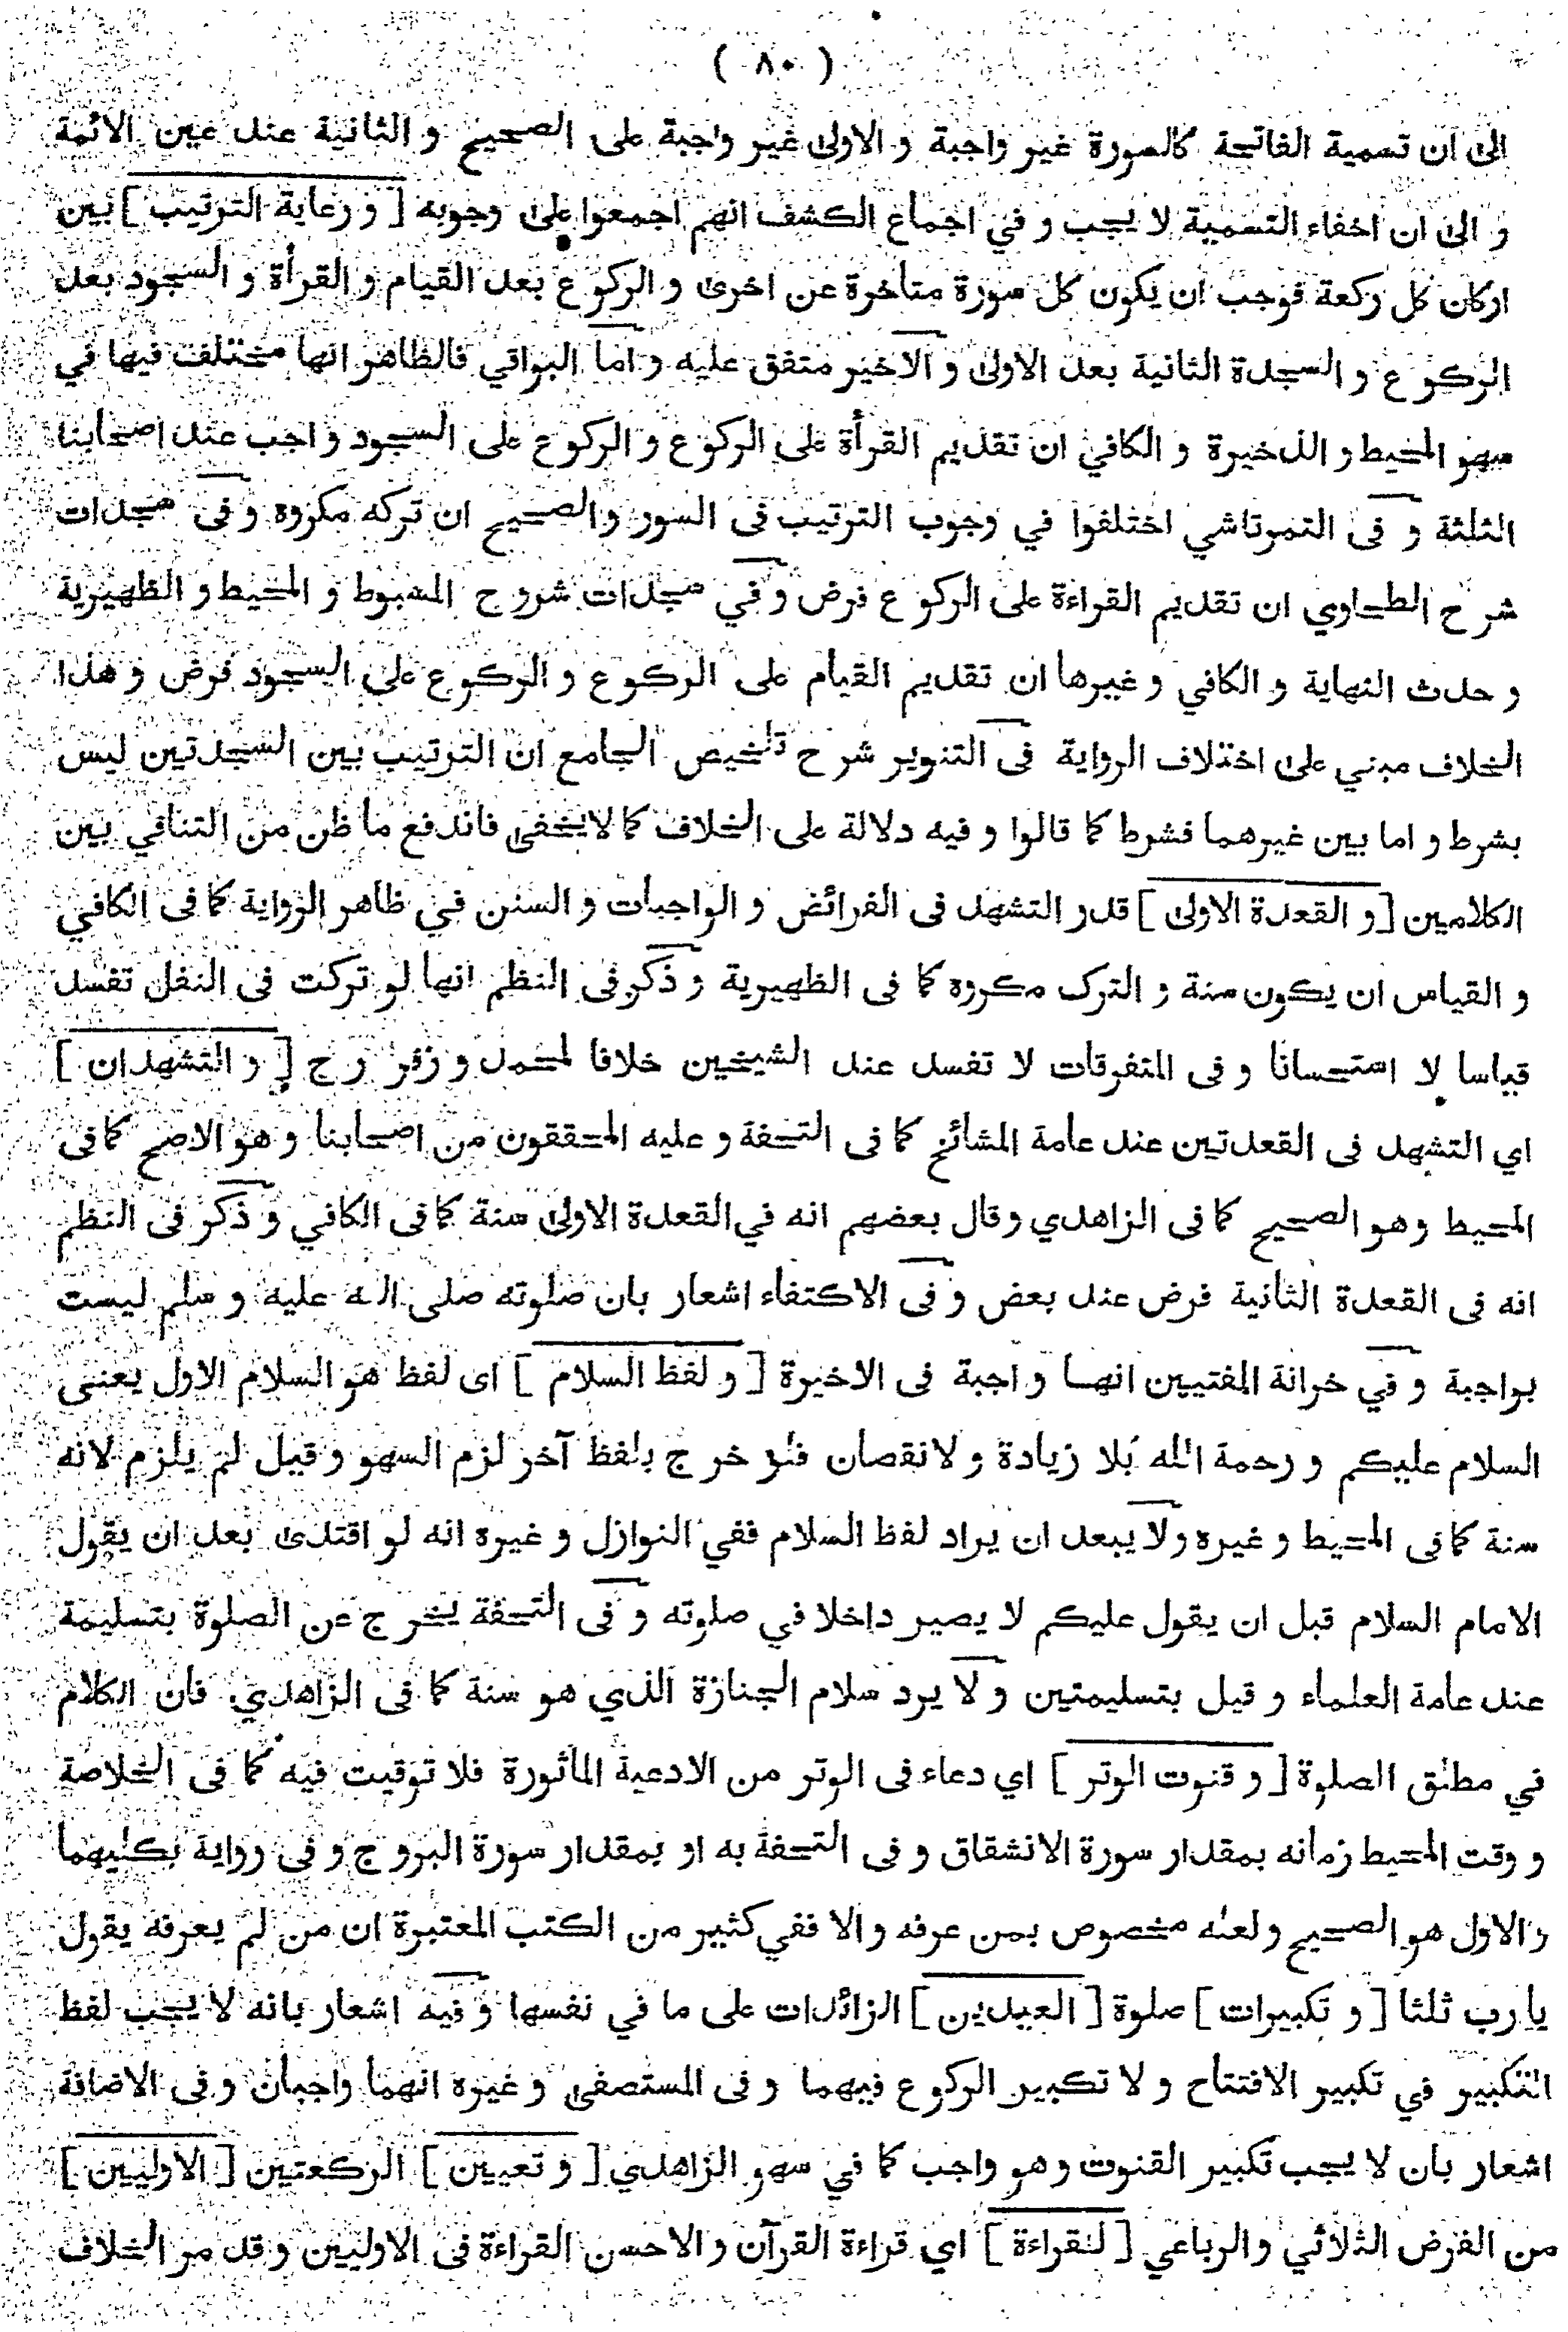 ( ٨٠ )
الى ان تسمية الفاتحة كالسورة غير واجبة و الاولى غير واجبة على الصحيح و الثانية عند عين الائمة
و الى ان اخفاء التسمية لا يجب و في اجماع الكشف انهم اجمعوا على وجوبه [ و رعاية الترتيب ] بين
اركان كل ركعة فوجب ان يكون كل سورة متأخرة عن اخرى و الركوع بعد القيام و القرأة و السجود بعد
الركوع و السجدة الثانية بعد الاولى و الاخير متفق عليه و اما البواقي فالظاهر انها مختلف فيها في
سهو المحيط و الذخيرة و الكافي ان تقديم القرأة على الركوع و الركوع على السجود واجب عند اصحابنا
الثلثة و فى التمرتاشي اختلفوا في وجوب الترتيب فى السور والصحيح ان تركه مكروه و فى سجدات
شرح الطحاوي ان تقديم القراءة على الركوع فرض و في سجدات شروح المبسوط و المحيط و الظهيرية
و حدث النهاية و الكافي و غيرها ان تقديم القيام على الركوع و الركوع على السجود فرض و هذا
الخلاف مبني على اختلاف الرواية فى التنوير شرح تلخيص الجامع ان الترتيب بين السجدتين ليس
بشرط و اما بين غيرهما فشرط كما قالوا و فيه دلالة على الخلاف كما لايخفى فاندفع ما ظن من التنافي بين
الكلامين [ و القعدة الاولى ] قدر التشهد فى الفرائض و الواجبات و السنن في ظاهر الرواية كما فى الكافي
و القياس ان يكون سنة و الترك مكروه كما فى الظهيرية و ذكر فى النظم انها لو تركت فى النفل تفسد
قياسا لا استحسانا و فى المتفرقات لا تفسد عند الشيخين خلافا لمحمد و زفر رح [ و التشهدان ]
اي التشهد فى القعدتين عند عامة المشائخ كما فى التحفة و عليه المحققون من اصحابنا و هو الاصح كما فى
المحيط وهو الصحيح كما فى الزاهدي وقال بعضهم انه في القعدة الاولى سنة كما فى الكافي و ذكر فى النظم
انه فى القعدة الثانية فرض عند بعض و فى الاكتفاء اشعار بان صلوته صلى اله عليه و سلم ليست
بواجبة و في خزانة المفتيين انها واجبة فى الاخيرة [ و لفظ السلام ] اى لفظ هو السلام الاول يعنى
السلام عليكم و رحمة الله بلا زيادة و لانقصان فلو خرج بلفظ آخر لزم السهو و قيل لم يلزم لانه
سنة كما فى المحيط و غيره ولا يبعد ان يراد لفظ السلام ففي النوازل و غيره انه لو اقتدى بعد ان يقول
الامام السلام قبل ان يقول عليكم لا يصير داخلا في صلوته و فى التحفة يخرج عن الصلوة بتسليمة
عند عامة العلماء و قيل بتسليمتين و لا يرد سلام الجنازة الذي هو سنة كما فى الزاهدي فان الكلام
في مطلق الصلوة [ و قنوت الوتر ] اي دعاء فى الوتر من الادعية المأثورة فلا توقيت فيه كما فى الخلاصة
و وقت المحيط زمانه بمقدار سورة الانشقاق و فى التحفة به او بمقدار سورة البروج و فى رواية بكليهما
و الاول هو الصحيح و لعله مخصوص بمن عرفه و الا ففي كثير من الكتب المعتبرة ان من لم يعرفه يقول
يا رب ثلثا [ و تكبيرات ] صلوة [ العيدين ] الزائدات على ما في نفسها و فيه اشعار بانه لا يجب لفظ
التكبير في تكبير الافتتاح و لا تكبير الركوع فيهما و فى المستصفى و غيره انهما واجبان و فى الاضافة
اشعار بان لا يجب تكبير القنوت وهو واجب كما في سهو الزاهدي [ و تعيين ] الركعتين [ الاوليين ]
من الفرض الثلاثي والرباعي [ للقراءة ] اي قراءة القرآن و الاحسن القراءة فى الاوليين و قد مر الخلاف